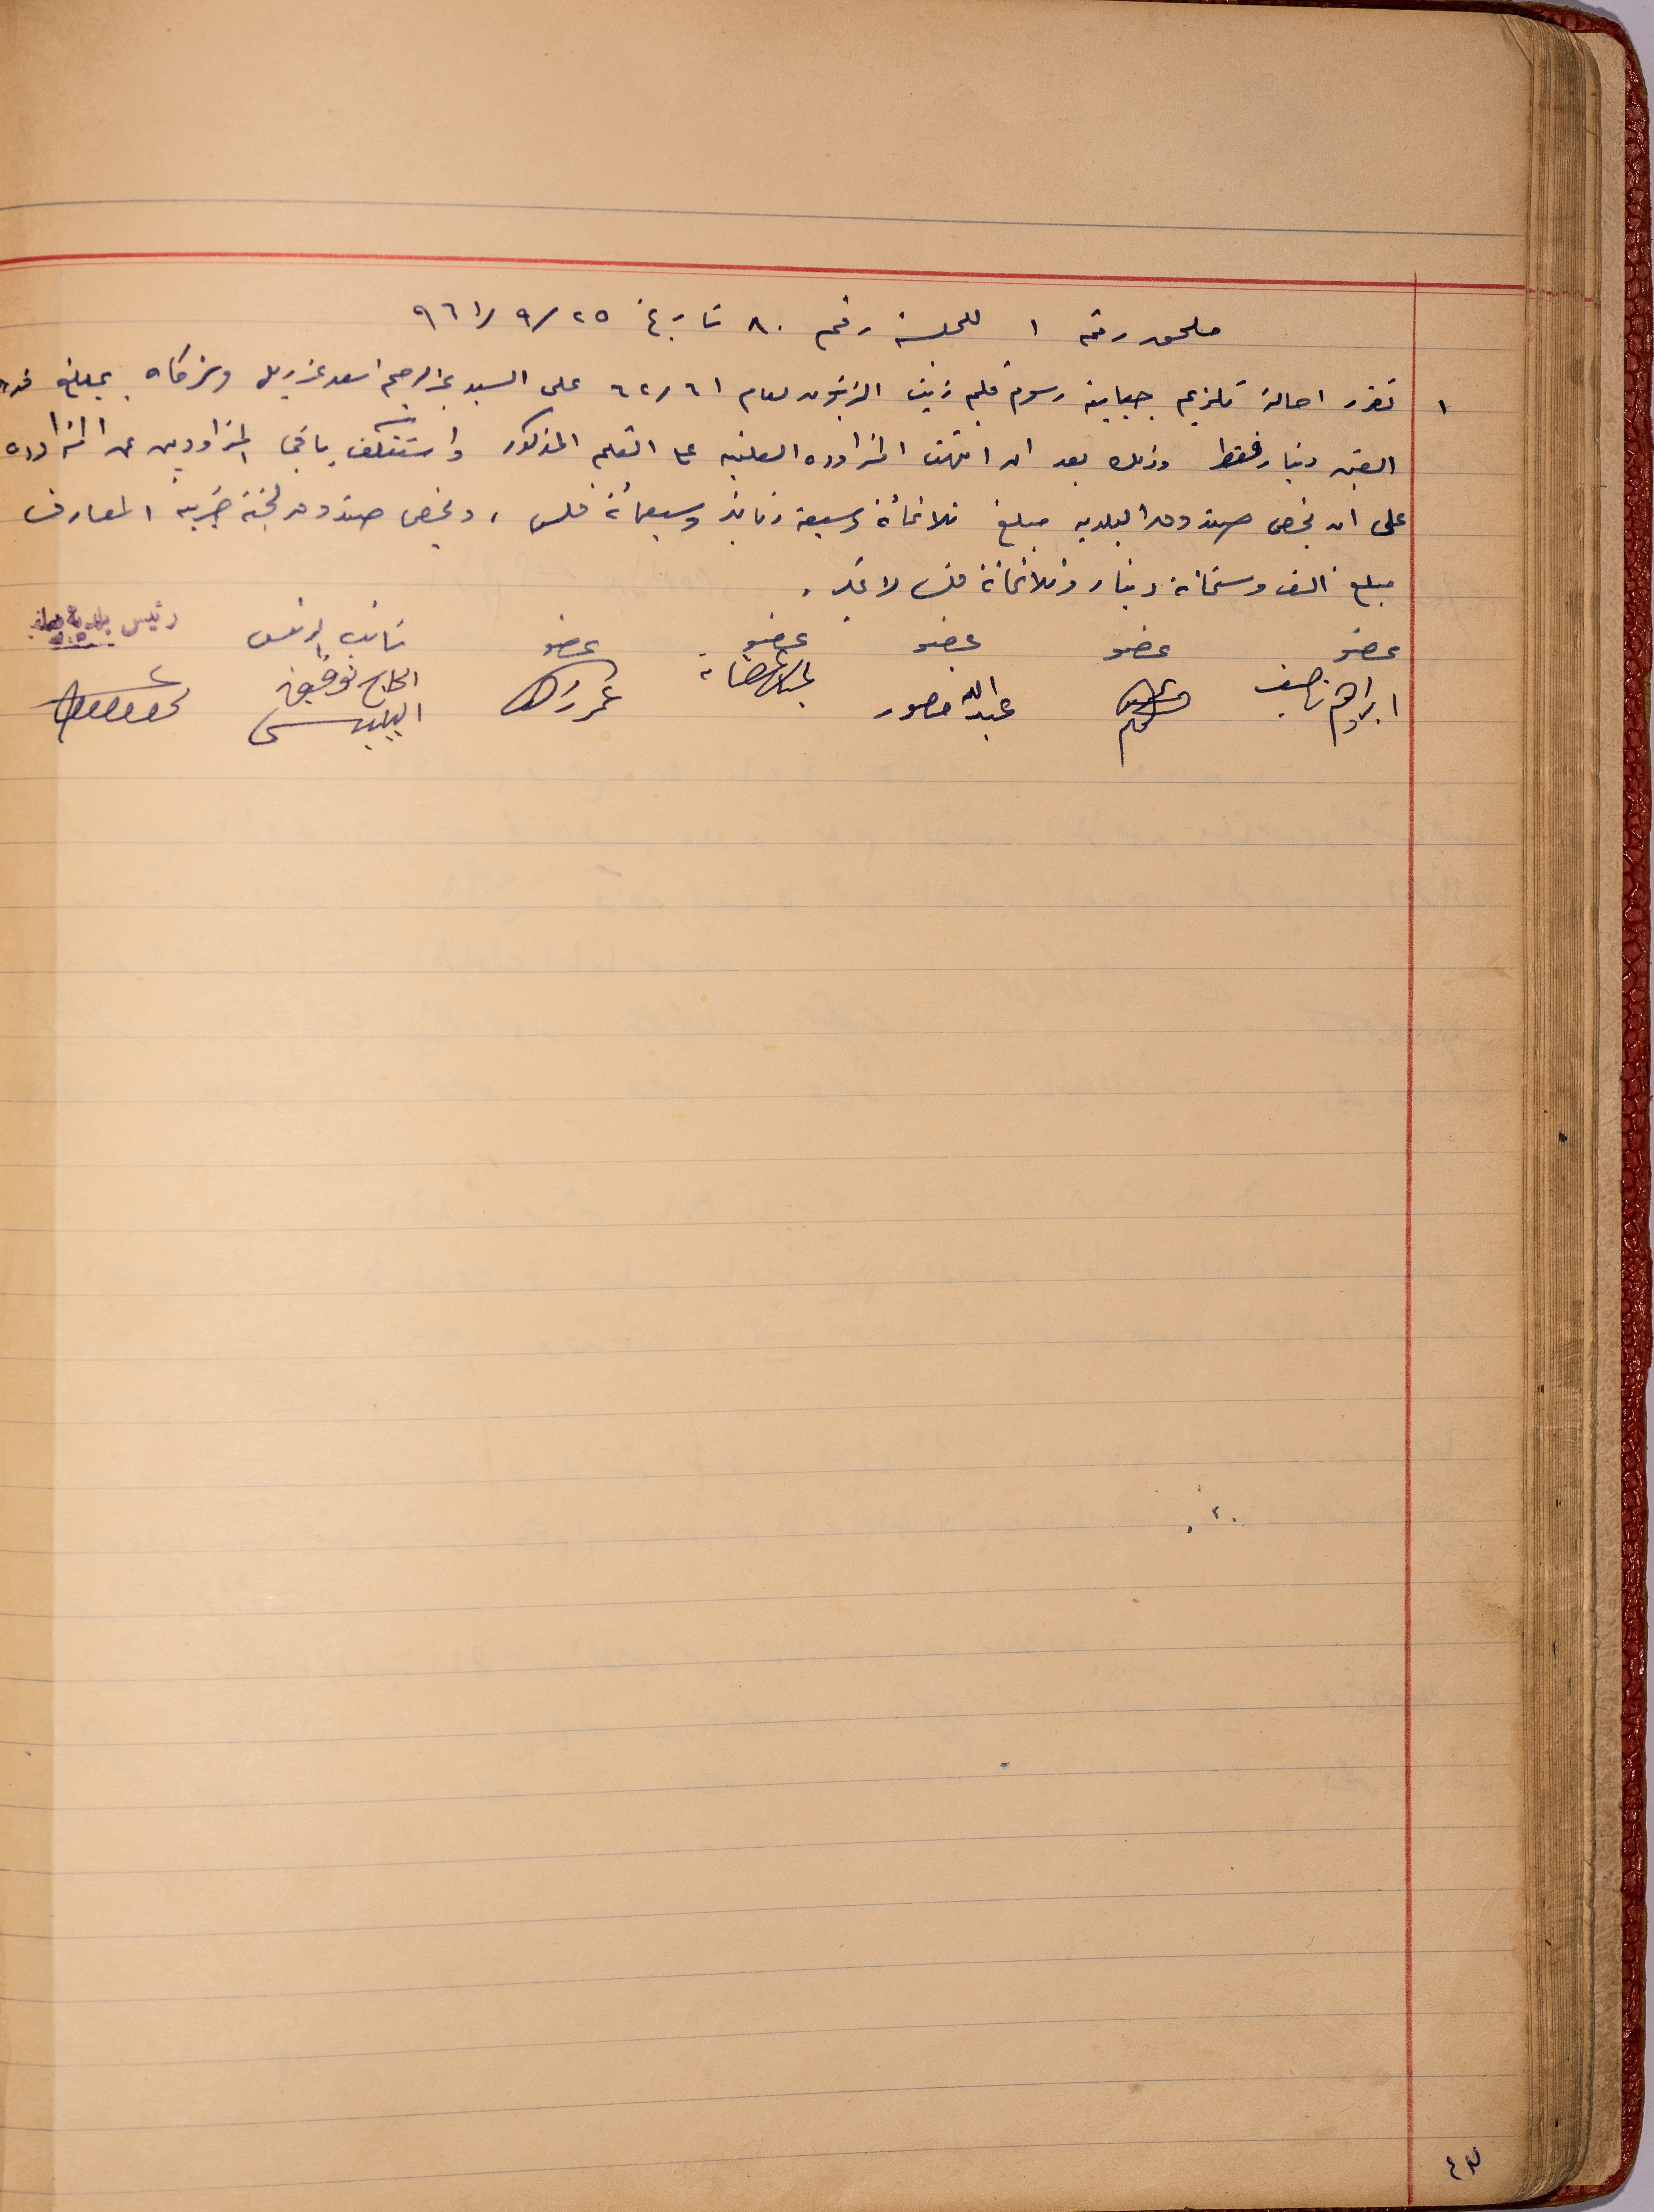 ملحق رقم ١ للجلسة رقم ٨٠ تاريخ ٢٥/٩/٩٦١
١ تقرر احالة تلزيم جباية رسوم قلم زيت الزيتون لعام ٦٢/٦١ على السيد عبد الرحيم اسعد وشركاه بمبلغ قدره
الفي دينار فقط وذلك بعد ان انتهت المزاوده العلنيه على القلم المذكور واستنكف باقي المزاودين عن المزاوده
على ان يخص صندوق البلديه مبلغ ثلاثمائة وسبعة دنانير وسبعمائة فلس ، ويخص صندوق لجنة ضريبة المعارف
مبلغ الف وستمائة دينار وثلاثمائة فلس لا غير .
عضو عضو عضو عضو عضو نائب الرئيس رئيس بلدية
ابراهيم ناصيف عبدالله منصور عمر الحاج توفيق